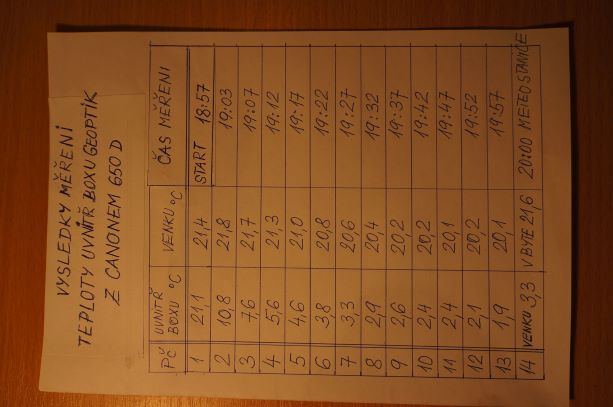 VÝSLEDKY MĚŘENÍ
TEPLOTY UVNITŘ BOXU GEOPTIK
Z CANONEM 650 D
PČ UVNITŘ BOXU °C VENKU °C ČAS MĚŘENÍ
1 21,1 21,4 START 18:57
2 10,8 21,8 19:03
3 7,6 21,7 19:07
4 5,6 21,3 19:12
5 4,6 21,0 19:17
6 3,8 20,8 19:22
7 3,3 20,6 19:27
8 2,9 20,4 19:32
9 2,6 20,2 19:37
10 2,4 20,2 19:42
11 2,4 20,1 19:47
12 2,1 20,2 19:52
13 1,9 20,1 19:57
14 VENKU 3,3 V BYTĚ 21,6 20:00 METEOSTANICE